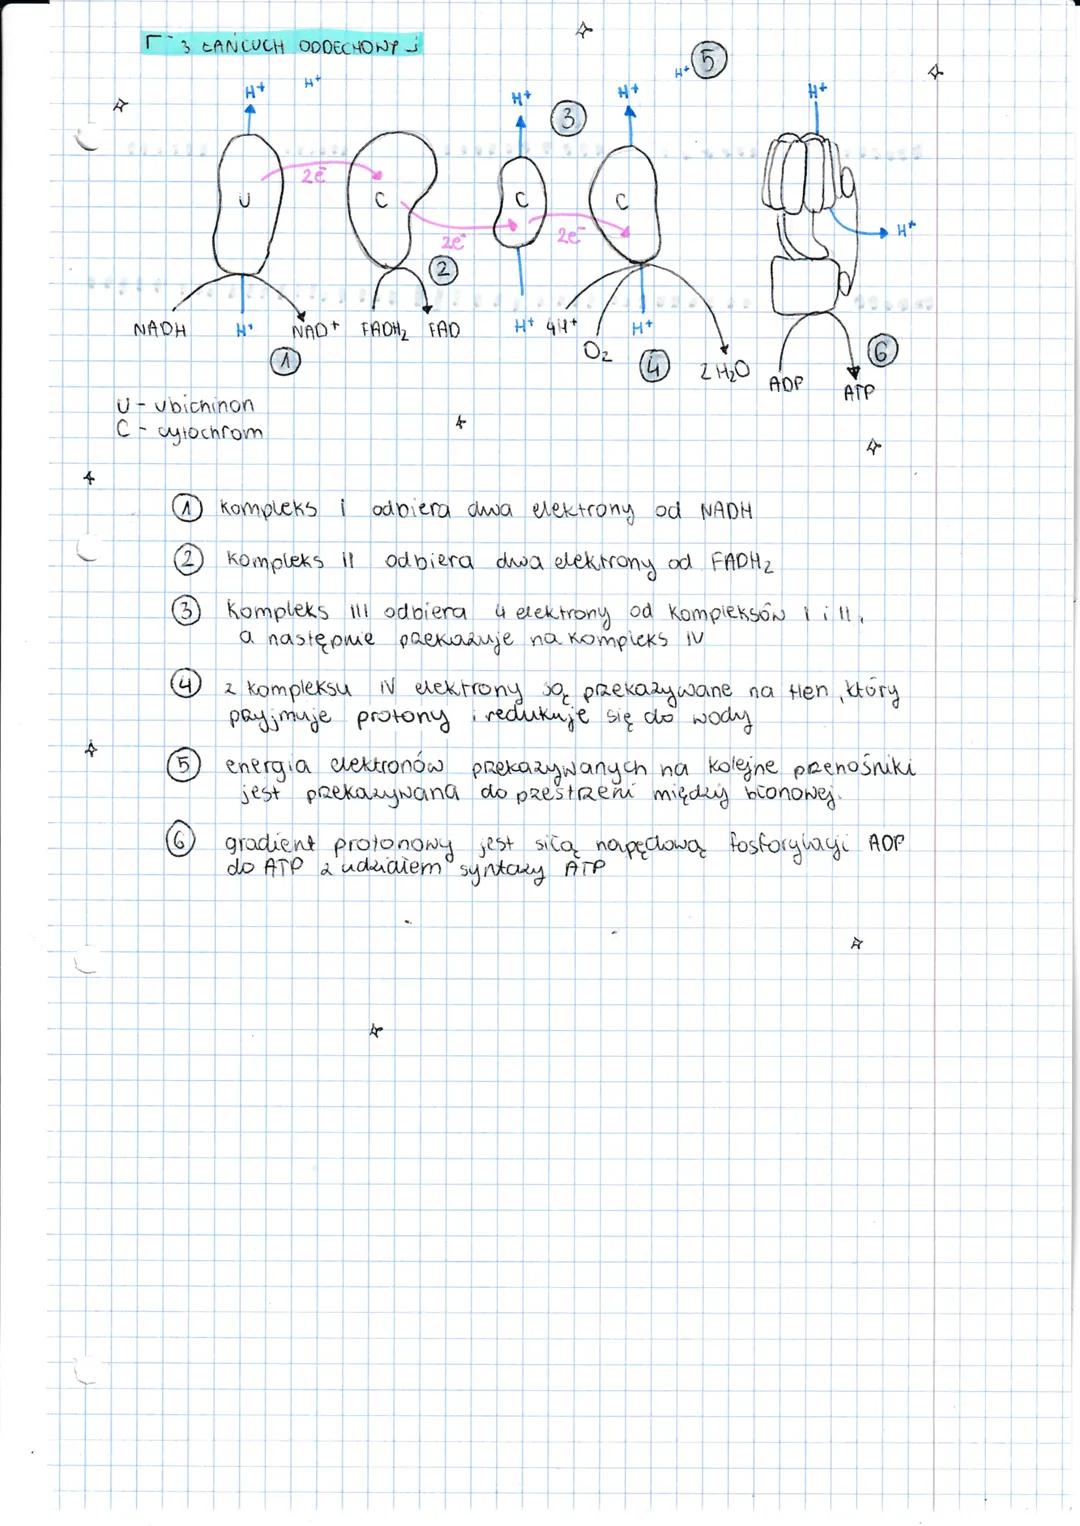 3 ŁAŃCUCH ODDECHOWY
H+ H+ H+ H+ H+ H+
5
3
U C C C
2e⁻ 2e⁻ 2e⁻
H+
2
NADH H+ NAD+ FADH₂ FAD H+ 4H+ H+
1
O₂ 4 2H₂O ADP ATP 6
U - ubichinon
C - cytochrom
1 kompleks i odbiera dwa elektrony od NADH
2 kompleks ii odbiera dwa elektrony od FADH₂
3 kompleks iii odbiera 4 elektrony od kompleksów i i ii,
a następnie przekazuje na kompleks iv
4 z kompleksu iv elektrony są przekazywane na tlen, który
przyjmuje protony i redukuje się do wody
5 energia elektronów przekazywanych na kolejne przenośniki
jest przekazywana do przestrzeni między błonowej.
6 gradient protonowy jest siłą napędową fosforylacji ADP
do ATP z udziałem syntazy ATP